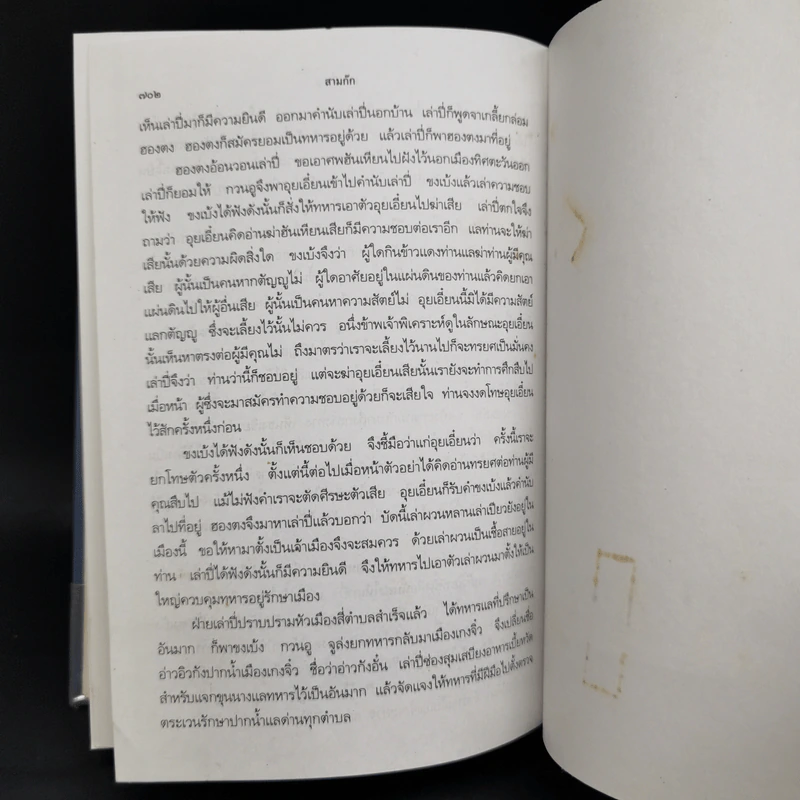 สามก๊ก
๗๐๒
เห็นเล่าปี่มาก็มีความยินดี ออกมาคำนับเล่าปี่นอกบ้าน เล่าปี่ก็พูดจาเกลี้ยกล่อม
ฮองตง ฮองตงก็สมัครยอมเป็นทหารอยู่ด้วย แล้วเล่าปี่ก็พาฮองตงมาที่อยู่
ฮองตงอ้อนวอนเล่าปี่ ขอเอาศพฮันเหียนไปฝังไว้นอกเมืองทิศตะวันออก
เล่าปี่ก็ยอมให้ กวนอูจึงพาอุยเอี๋ยนเข้าไปคำนับเล่าปี่ ขงเบ้งแล้วเล่าความชอบ
ให้ฟัง ขงเบ้งได้ฟังดังนั้นก็สั่งให้ทหารเอาตัวอุยเอี๋ยนไปฆ่าเสีย เล่าปี่ตกใจจึง
ถามว่า อุยเอี๋ยนคิดอ่านฆ่าฮันเหียนเสียก็มีความชอบต่อเราอีก แลท่านจะให้ฆ่า
เสียนั้นด้วยความผิดสิ่งใด ขงเบ้งจึงว่า ผู้ใดกินข้าวแดงท่านแลฆ่าท่านผู้มีคุณ
เสีย ผู้นั้นเป็นคนหากตัญญูไม่ ผู้ใดอาศัยอยู่ในแผ่นดินของท่านแล้วคิดยกเอา
แผ่นดินไปให้ผู้อื่นเสีย ผู้นั้นเป็นคนหาความสัตย์ไม่ อุยเอี๋ยนนี้มิได้มีความสัตย์
แลกตัญญู ซึ่งจะเลี้ยงไว้นั้นไม่ควร อนึ่งข้าพเจ้าพิเคราะห์ดูในลักษณะอุยเอี๋ยน
นั้นเห็นหาตรงต่อผู้มีคุณไม่ ถึงมาตรว่าเราจะเลี้ยงไว้นานไปก็จะทรยศเป็นมั่นคง
เล่าปี่จึงว่า ท่านว่านี้ก็ชอบอยู่ แต่จะฆ่าอุยเอี๋ยนเสียนั้นเรายังจะทำการศึกสืบไป
เมื่อหน้า ผู้ซึ่งจะมาสมัครทำความชอบอยู่ด้วยก็จะเสียใจ ท่านจงงดโทษอุยเอี๋ยน
ไว้สักครั้งหนึ่งก่อน
ขงเบ้งได้ฟังดังนั้นก็เห็นชอบด้วย จึงชี้มือว่าแก่อุยเอี๋ยนว่า ครั้งนี้เราจะ
ยกโทษตัวครั้งหนึ่ง ตั้งแต่นี้ต่อไปเมื่อหน้าตัวอย่าได้คิดอ่านทรยศต่อท่านผู้มี
คุณสืบไป แม้ไม่ฟังคำเราจะตัดศีรษะตัวเสีย อุยเอี๋ยนก็รับคำขงเบ้งแล้วคำนับ
ลาไปที่อยู่ ฮองตงจึงมาหาเล่าปี่แล้วบอกว่า บัดนี้เล่าผวนหลานเล่าเปียวยังอยู่ใน
เมืองนี้ ขอให้หามาตั้งเป็นเจ้าเมืองจึงจะสมควร ด้วยเล่าผวนเป็นเชื้อสายอยู่ใน
ท่าน เล่าปี่ได้ฟังดังนั้นก็มีความยินดี จึงให้ทหารไปเอาตัวเล่าผวนมาตั้งให้เป็น
ใหญ่ควบคุมทหารอยู่รักษาเมือง
ฝ่ายเล่าปี่ปราบปรามหัวเมืองสี่ตำบลสำเร็จแล้ว ได้ทหารแลที่ปรึกษาเป็น
อันมาก ก็พาขงเบ้ง กวนอู จูล่งยกทหารกลับมาเมืองเกงจิ๋ว จึงเปลี่ยนชื่อ
อ่าวอิวกังปากน้ำเมืองเกงจิ๋ว ชื่อว่าอ่าวกังอั๋น เล่าปี่ซ่องสุมเสบียงอาหารเบี้ยหวัด
สำหรับแจกขุนนางแลทหารไว้เป็นอันมาก แล้วจัดแจงให้ทหารที่มีฝีมือไปตั้งตรวจ
ตระเวนรักษาปากน้ำแลด่านทุกตำบล